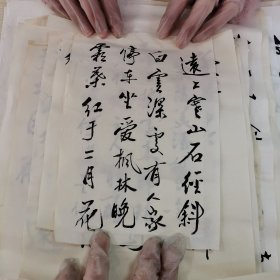 遠上寒山石徑斜
白雲深處有人家
停車坐愛楓林晚
霜葉紅于二月花